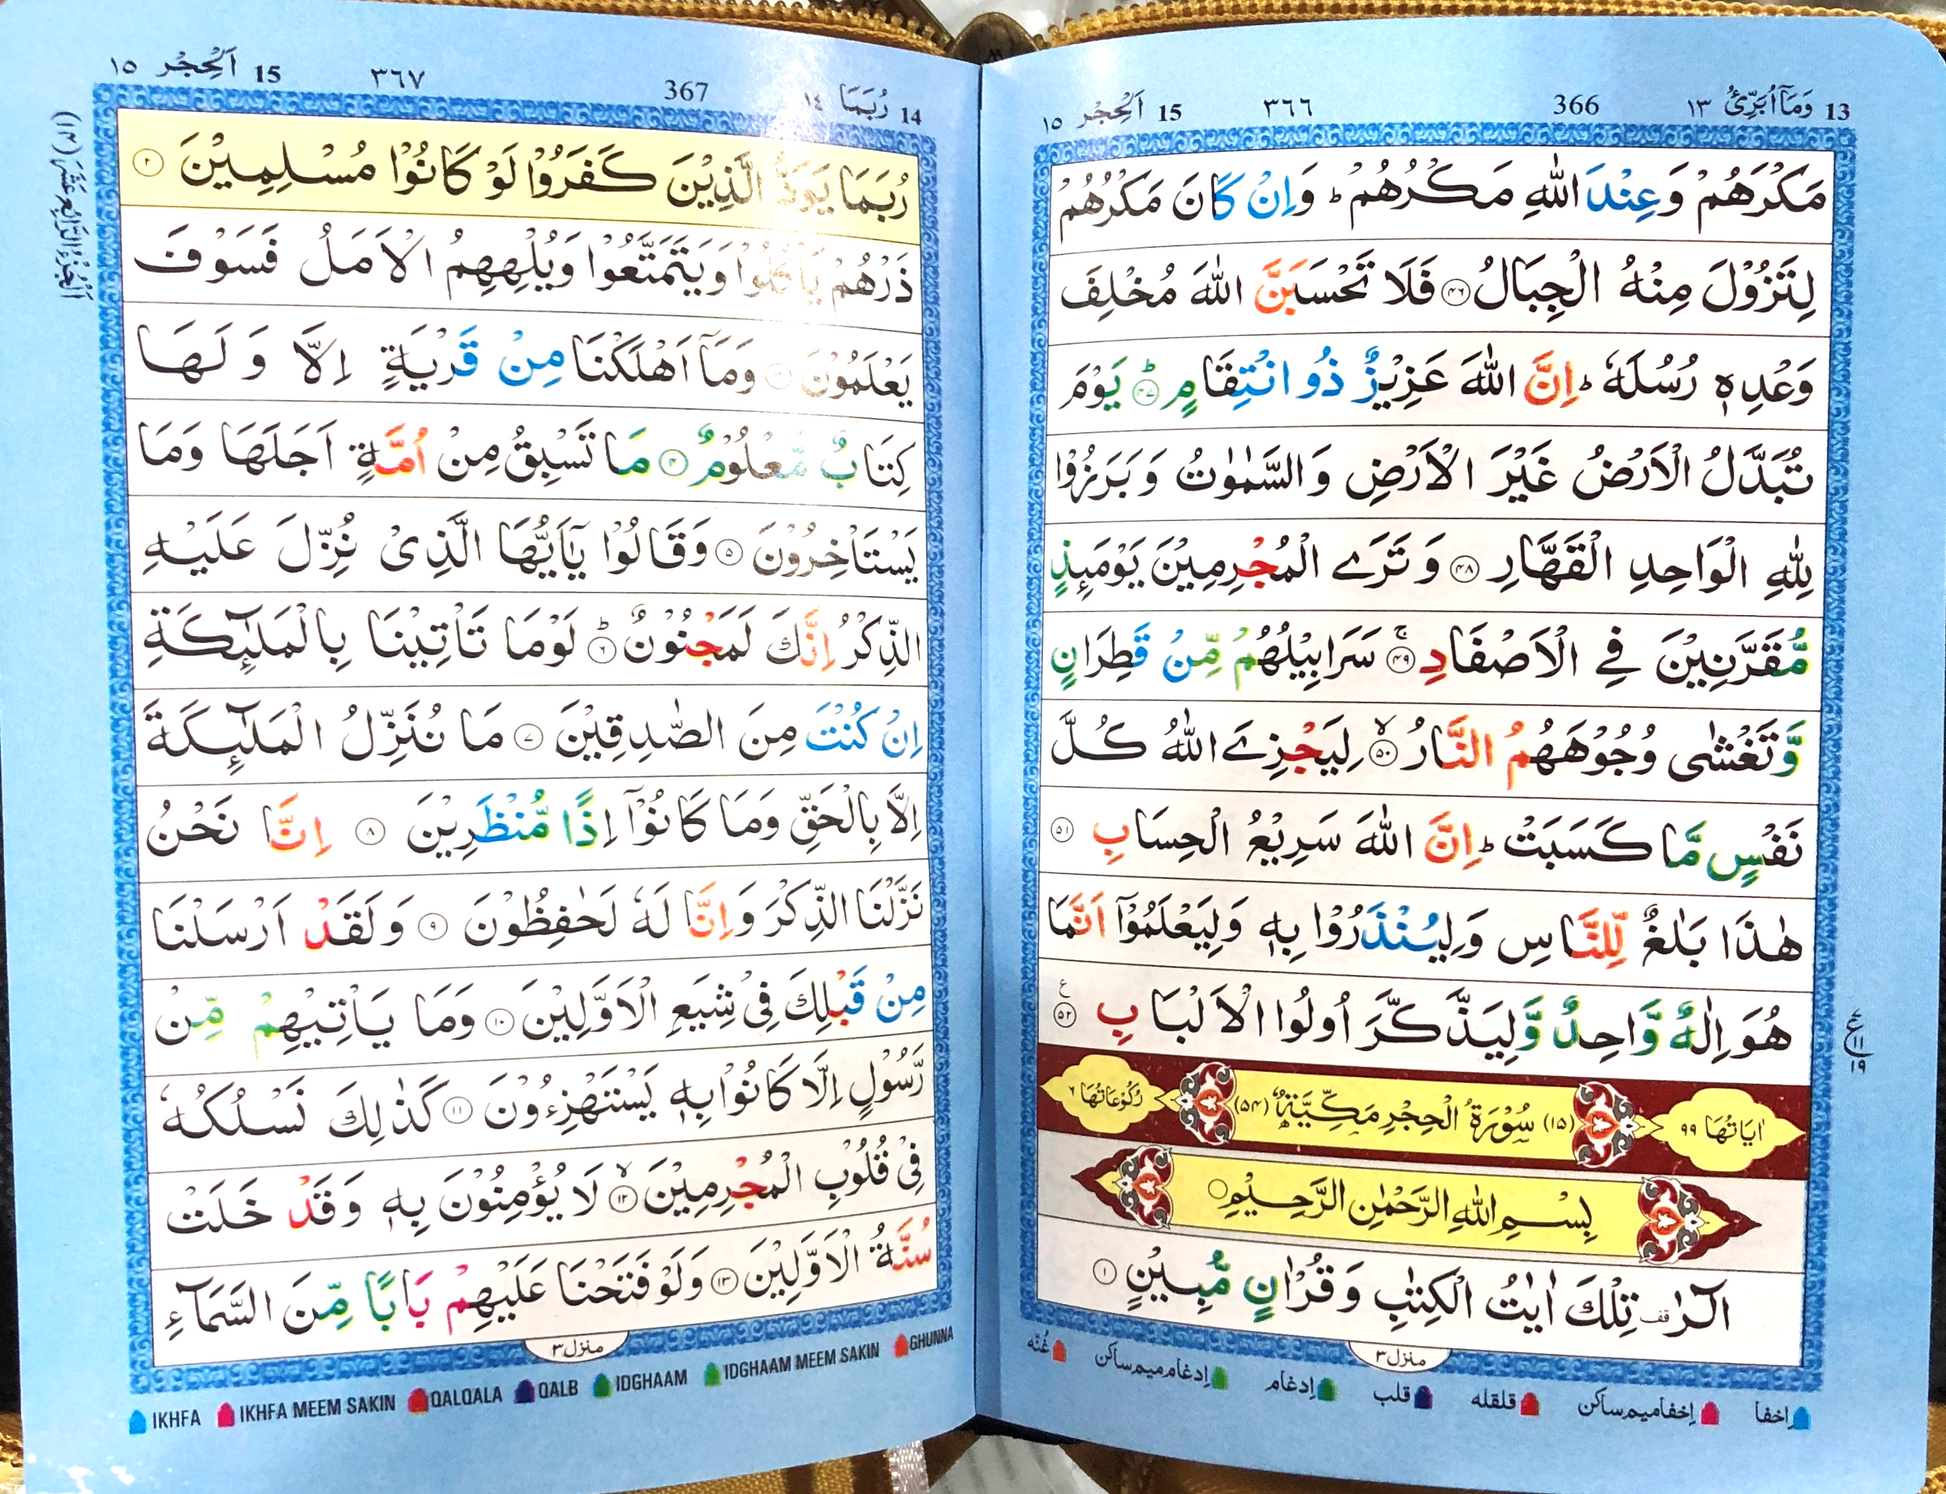 13 وَمَآ اُبَرِّئُ ١٣ 366 ٣٦٦ 15 اَلْحِجْر ١٥
مَكْرَهُمْ وَعِنْدَ اللّٰهِ مَكْرُهُمْ ؕ وَاِنْ كَانَ مَكْرُهُمْ
لِتَزُوْلَ مِنْهُ الْجِبَالُ ۝۴۶ فَلَا تَحْسَبَنَّ اللّٰهَ مُخْلِفَ
وَعْدِهٖ رُسُلَهٗ ؕ اِنَّ اللّٰهَ عَزِيْزٌ ذُو انْتِقَامٍ ؕ۝۴۷ يَوْمَ
تُبَدَّلُ الْاَرْضُ غَيْرَ الْاَرْضِ وَالسَّمٰوٰتُ وَبَرَزُوْا
لِلّٰهِ الْوَاحِدِ الْقَهَّارِ ۝۴۸ وَتَرَے الْمُجْرِمِيْنَ يَوْمَئِذٍ
مُّقَرَّنِيْنَ فِے الْاَصْفَادِ ۚ۝۴۹ سَرَابِيْلُهُمْ مِّنْ قَطِرَانٍ
وَّتَغْشٰى وُجُوْهَهُمُ النَّارُ ۙ۝۵۰ لِيَجْزِےَ اللّٰهُ كُلَّ
نَفْسٍ مَّا كَسَبَتْ ؕ اِنَّ اللّٰهَ سَرِيْعُ الْحِسَابِ ۝۵۱
هٰذَا بَلٰغٌ لِّلنَّاسِ وَلِيُنْذَرُوْا بِهٖ وَلِيَعْلَمُوْٓا اَنَّمَا
هُوَ اِلٰهٌ وَّاحِدٌ وَّلِيَذَّكَّرَ اُولُوا الْاَلْبَابِ ۝۵۲ ع
ع ١١ ١٩
اٰيَاتُهَا ۹۹ (۱۵) سُوْرَةُ الْحِجْرِ مَكِّيَّةٌ (۵۴) رُكُوْعَاتُهَا ۶
بِسْمِ اللّٰهِ الرَّحْمٰنِ الرَّحِيْمِ
الٓرٰ قف تِلْكَ اٰيٰتُ الْكِتٰبِ وَقُرْاٰنٍ مُّبِيْنٍ ۝۱
منزل ۳
اِخفا اِخفا میم ساکن قلقله قلب اِدغام اِدغام میم ساکن غُنّه
14 رُبَمَا ١٤ 367 ٣٦٧ 15 اَلْحِجْر ١٥
اَلْجُزْءُ الرَّابِعُ عَشَرَ (۱۴)
رُبَمَا يَوَدُّ الَّذِيْنَ كَفَرُوْا لَوْ كَانُوْا مُسْلِمِيْنَ ۝۲
ذَرْهُمْ يَاْكُلُوْا وَيَتَمَتَّعُوْا وَيُلْهِهِمُ الْاَمَلُ فَسَوْفَ
يَعْلَمُوْنَ ۝۳ وَمَآ اَهْلَكْنَا مِنْ قَرْيَةٍ اِلَّا وَلَهَا
كِتَابٌ مَّعْلُوْمٌ ۝۴ مَا تَسْبِقُ مِنْ اُمَّةٍ اَجَلَهَا وَمَا
يَسْتَاْخِرُوْنَ ۝۵ وَقَالُوْا يٰٓاَيُّهَا الَّذِىْ نُزِّلَ عَلَيْهِ
الذِّكْرُ اِنَّكَ لَمَجْنُوْنٌ ؕ۝۶ لَوْمَا تَاْتِيْنَا بِالْمَلٰٓئِكَةِ
اِنْ كُنْتَ مِنَ الصّٰدِقِيْنَ ۝۷ مَا نُنَزِّلُ الْمَلٰٓئِكَةَ
اِلَّا بِالْحَقِّ وَمَا كَانُوْٓا اِذًا مُّنْظَرِيْنَ ۝۸ اِنَّا نَحْنُ
نَزَّلْنَا الذِّكْرَ وَاِنَّا لَهٗ لَحٰفِظُوْنَ ۝۹ وَلَقَدْ اَرْسَلْنَا
مِنْ قَبْلِكَ فِىْ شِيَعِ الْاَوَّلِيْنَ ۝۱۰ وَمَا يَاْتِيْهِمْ مِّنْ
رَّسُوْلٍ اِلَّا كَانُوْا بِهٖ يَسْتَهْزِءُوْنَ ۝۱۱ كَذٰلِكَ نَسْلُكُهٗ
فِىْ قُلُوْبِ الْمُجْرِمِيْنَ ۙ۝۱۲ لَا يُؤْمِنُوْنَ بِهٖ وَقَدْ خَلَتْ
سُنَّةُ الْاَوَّلِيْنَ ۝۱۳ وَلَوْ فَتَحْنَا عَلَيْهِمْ بَابًا مِّنَ السَّمَآءِ
منزل ۳
IKHFA IKHFA MEEM SAKIN QALQALA QALB IDGHAAM IDGHAAM MEEM SAKIN GHUNNA